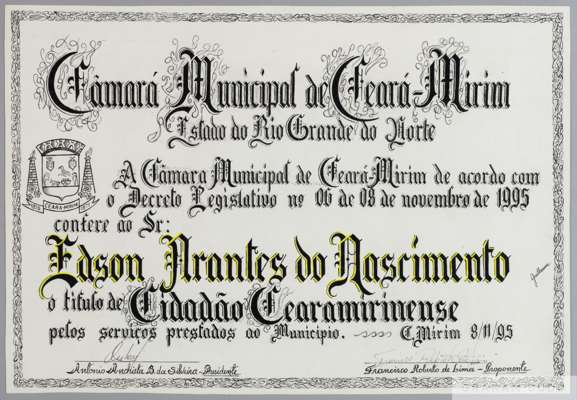 Câmara Municipal de Ceará-Mirim
Estado do Rio Grande do Norte
A Câmara Municipal de Ceará-Mirim de acordo com
o Decreto Legislativo nº 06 de 08 de novembro de 1995
confere ao Sr:
Edson Arantes do Nascimento
o título de Cidadão Cearamirinense
pelos serviços prestados ao Município. C.Mirim 8/11/95
CEARÁ-MIRIM
Antônio Anchieta B. da Silveira - Presidente
Francisco Roberto de Lima - Proponente